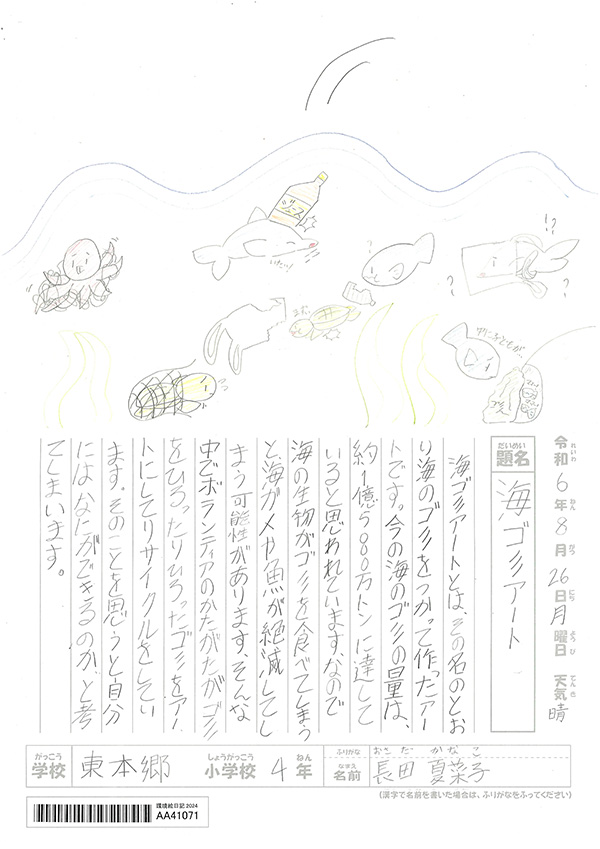 ジュース
いたいっ
!?
?
?
?
ゴミ
令和6年8月26日月曜日 天気 晴
れいわ ねん がつ にち ようび てんき
だいめい
題名
海ゴミアート
海ゴミアートとは、その名のとお
り海のゴミをつかって作ったアー
トです。今の海のゴミの量は、
約1億5000万トンに達して
いると思われています、なので
海の生物がゴミを食べてしまう
と海ガメや魚が絶滅してし
まう可能性があります、そんな
中でボランティアのかたがたがゴミ
をひろったりひろったゴミをアー
トにしてリサイクルをしてい
ます。そのことを思うと自分
にはなにができるのかと考
てしまいます。
がっこう しょうがっこう ねん ふりがな おさだ かなこ
学校 東本郷 小学校 4年 なまえ 名前 長田 夏菜子
(漢字で名前を書いた場合は、ふりがなをふってください)
環境絵日記2024
AA41071